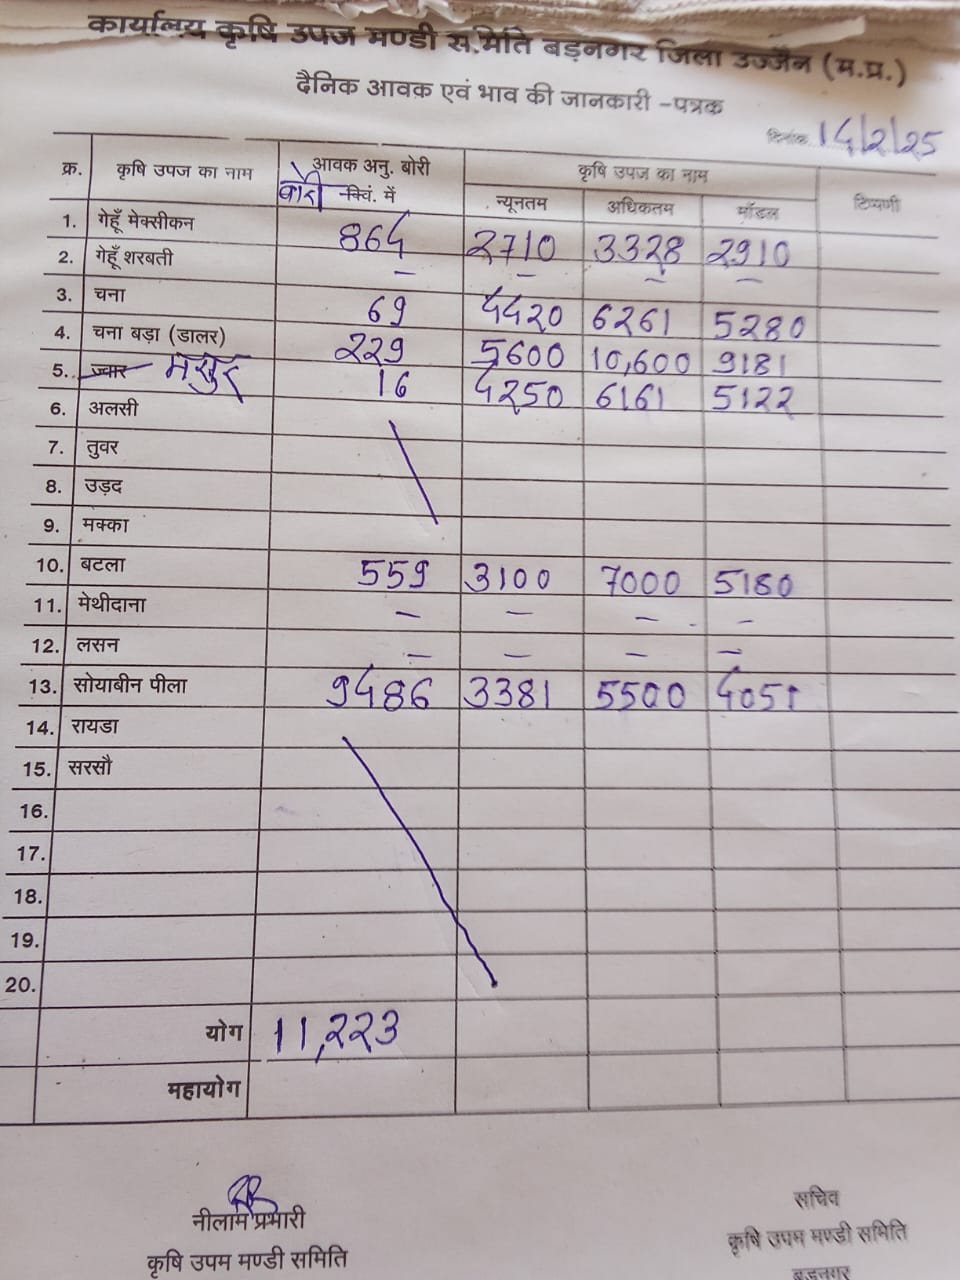 कार्यालय कृषि उपज मण्डी समिति बड़नगर जिला उज्जैन (म.प्र.)
दैनिक आवक एवं भाव की जानकारी -पत्रक
दिनांक 14/2/25
क्र. कृषि उपज का नाम आवक अनु. बोरी कृषि उपज का नाम टिप्पणी
बोरी क्विं. में न्यूनतम अधिकतम मॉडल
1. गेहूँ मेक्सीकन 864 2710 3328 2910
2. गेहूँ शरबती – – – –
3. चना 69 4420 6261 5280
4. चना बड़ा (डालर) 229 5600 10,600 9181
5. ज्वार मसुर 16 4250 6161 5122
6. अलसी
7. तुवर
8. उड़द
9. मक्का
10. बटला 559 3100 7000 5180
11. मेथीदाना – – – –
12. लसन – – – –
13. सोयाबीन पीला 9486 3381 5500 4051
14. रायडा
15. सरसौ
16.
17.
18.
19.
20.
योग 11,223
महायोग
नीलाम प्रभारी
कृषि उपम मण्डी समिति
सचिव
कृषि उपम मण्डी समिति
बड़नगर